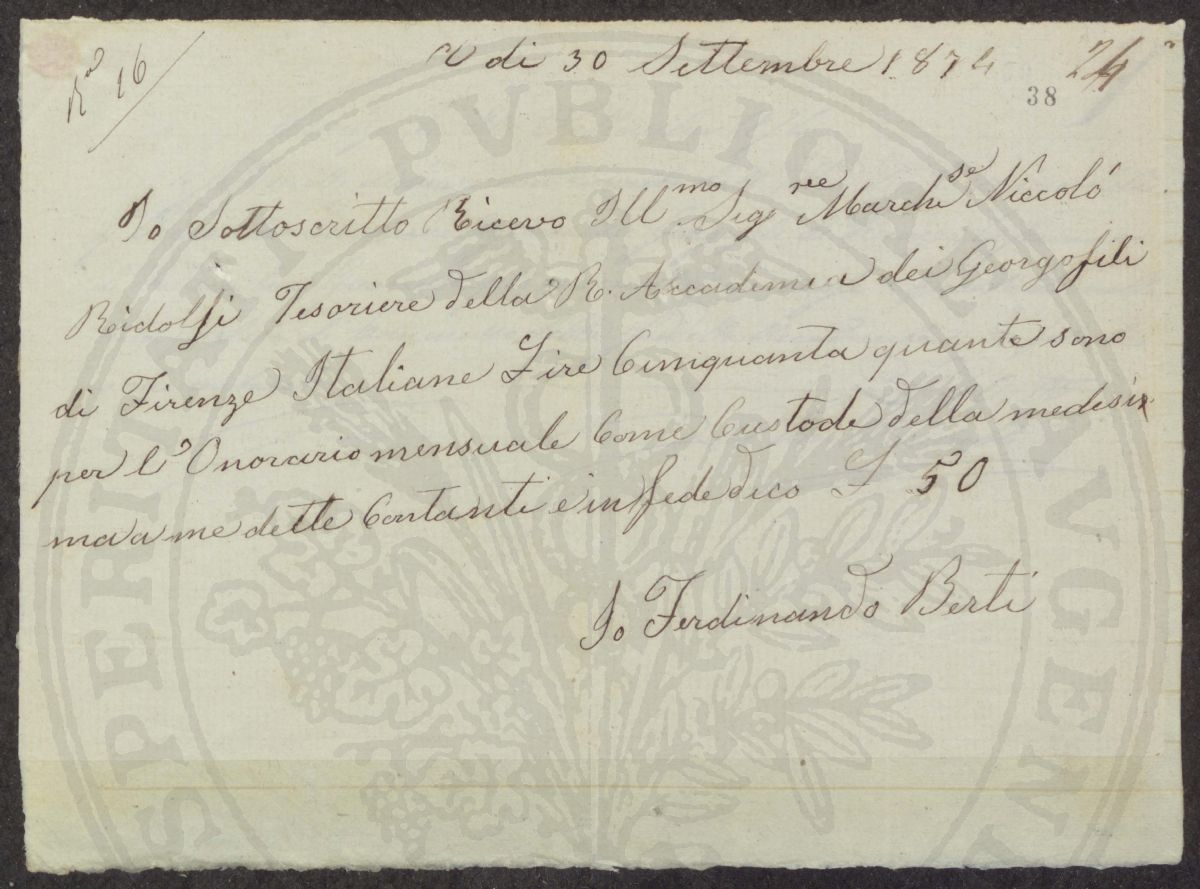 R.ta 16
A di 30 Settembre 1874
24
38
Io Sottoscritto Ricevo Ill mo Sig ree March se Niccoló
Ridolfi Tesoriere della R. Accademia dei Georgofili
di Firenze Italiane Lire Cinquanta quante sono
per l'Onorario mensuale Come Custode della medesi=
ma a me dette Contanti e in fede dico L 50
Io Ferdinando Berti
PROSPERITATI PVBLICAE AVGENDAE